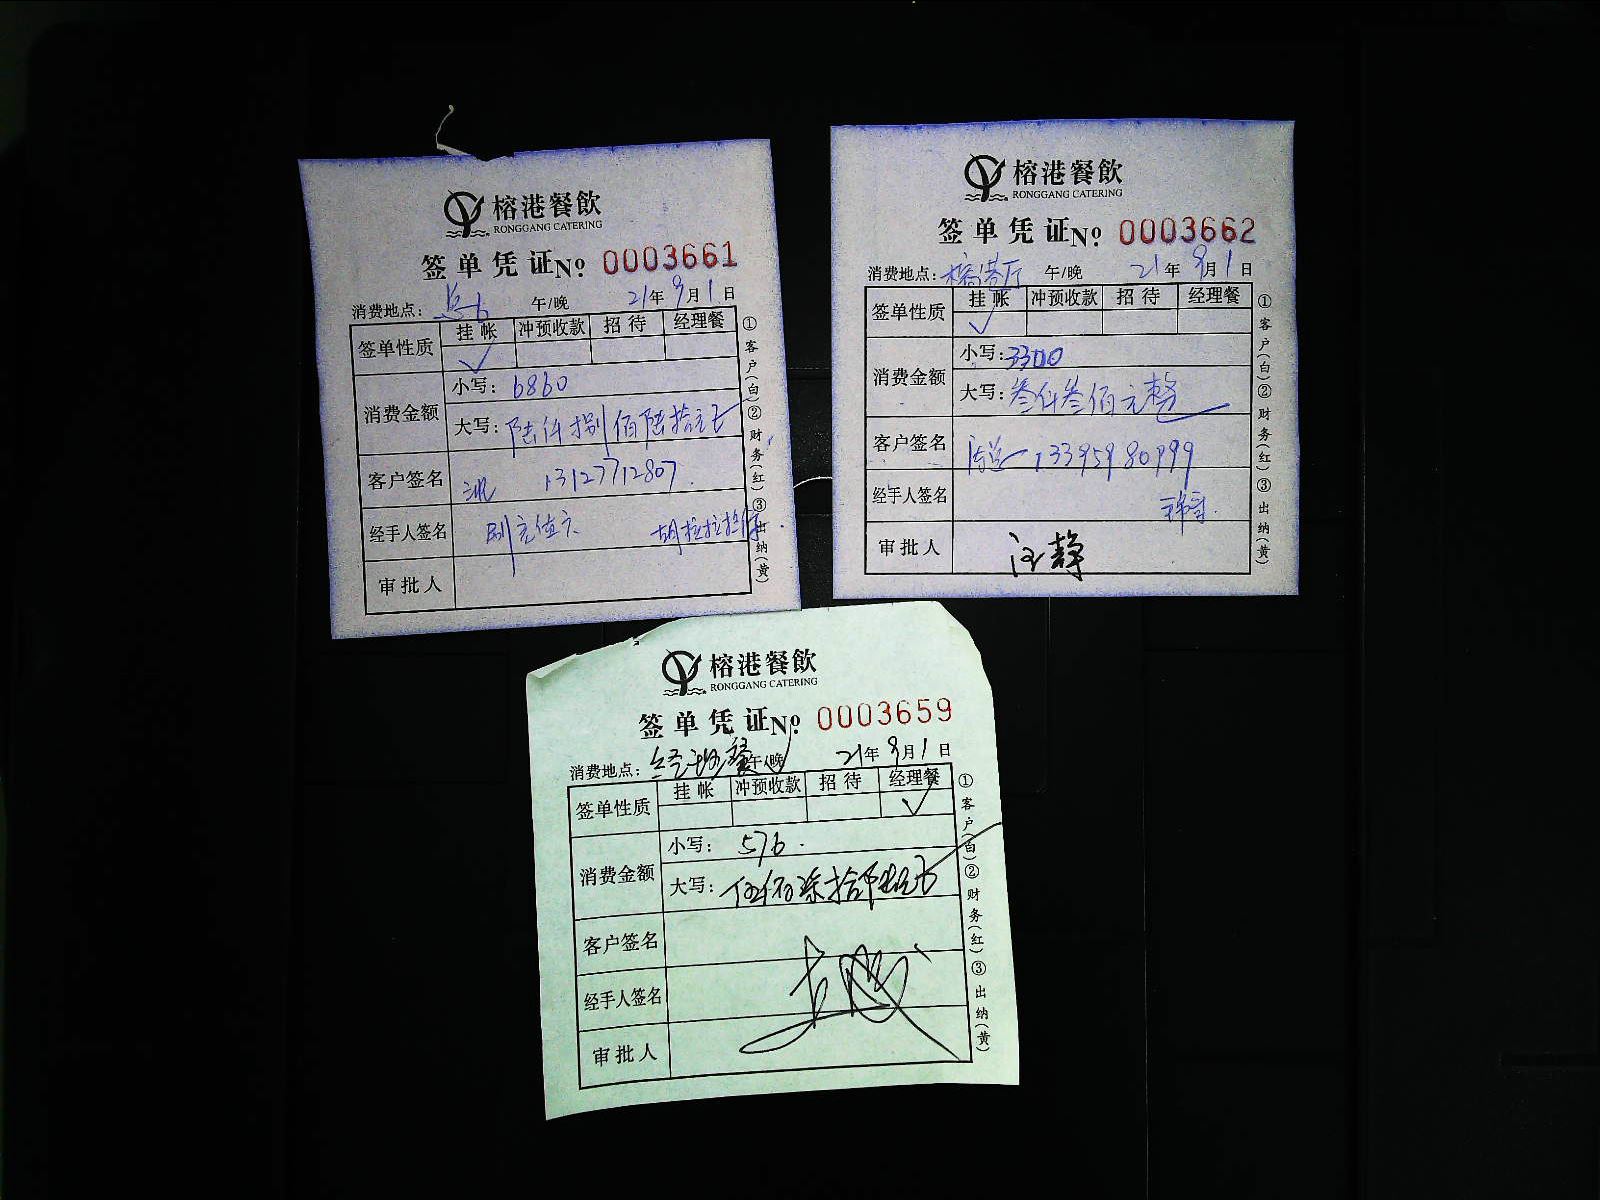 榕港餐飲
RONGGANG CATERING
签单凭证No 0003661
消费地点: 午/晚 21年9月1日
签单性质 挂帐 冲预收款 招待 经理餐
✓
消费金额 小写: 6860
大写: 陆仟捌佰陆拾元正
客户签名 13127712807
经手人签名
审批人
①客户(白)②财务(红)③出纳(黄)
榕港餐飲
RONGGANG CATERING
签单凭证No 0003662
消费地点: 榕港厅 午/晚 21年9月1日
签单性质 挂帐 冲预收款 招待 经理餐
✓
消费金额 小写: 3300
大写: 叁仟叁佰元整
客户签名 13395980999
经手人签名
审批人 汪静
①客户(白)②财务(红)③出纳(黄)
榕港餐飲
RONGGANG CATERING
签单凭证No 0003659
消费地点: 经理餐 午/晚 21年9月1日
签单性质 挂帐 冲预收款 招待 经理餐
✓
消费金额 小写: 576.
大写: 伍佰柒拾陆元正
客户签名
经手人签名
审批人
①客户(白)②财务(红)③出纳(黄)